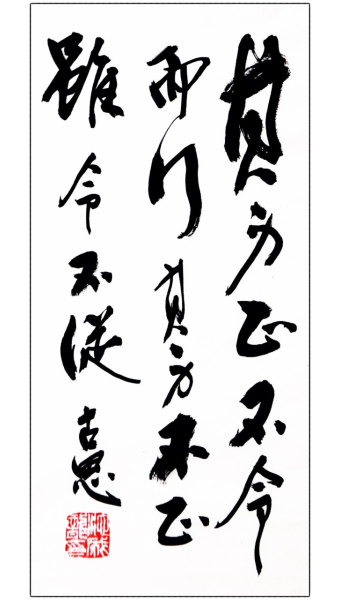 其身正不令
而行其身不正
雖令不從 古思